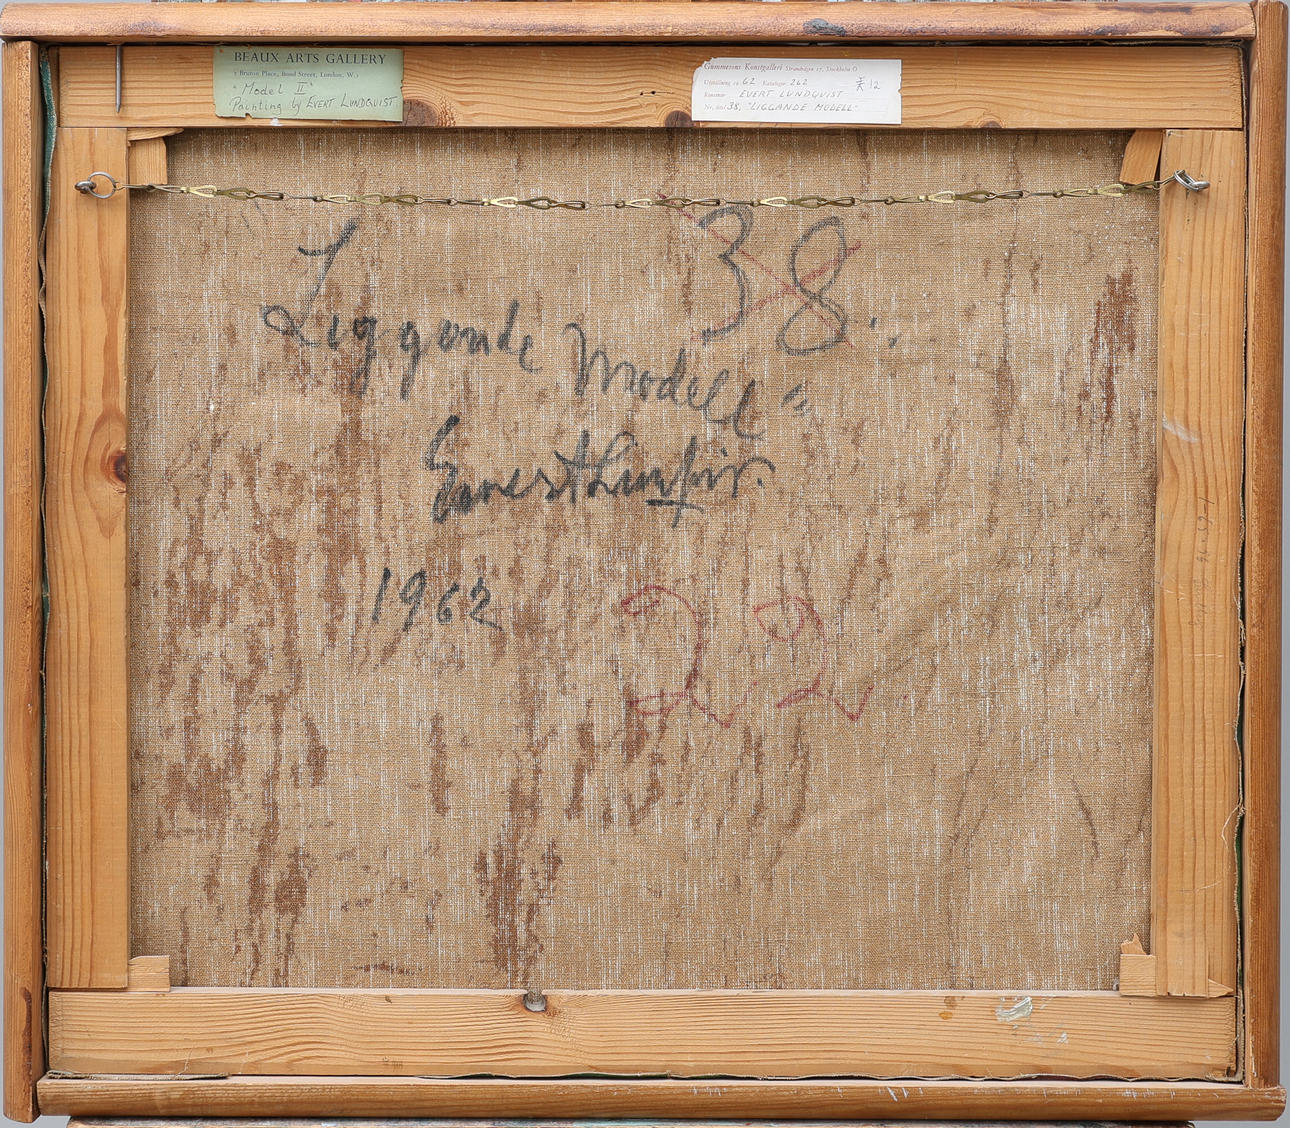 BEAUX ARTS GALLERY
1 Bruton Place, Bond Street, London, W.1
"Model II"
Painting by EVERT LUNDQUIST
Gummesons Konstgalleri Strandvägen 17, Stockholm Ö
Utställning nr 62 Katalognr 262
Konstnär EVERT LUNDQUIST
38, "LIGGANDE MODELL"
12
38.
Liggande Modell"
Evert
1962
22